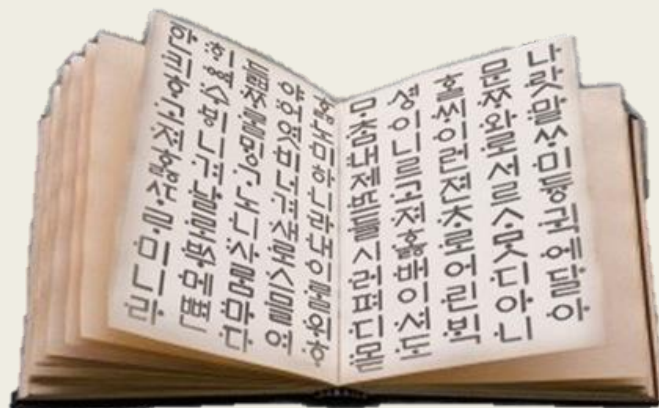 나랏말ᄊᆞ미듕귁에달아
문ᄍᆞ와로서르ᄉᆞᄆᆞᆺ디아니
ᄒᆞᆯ씨이런젼ᄎᆞ로어린ᄇᆡᆨ
셩이니르고져ᄒᆞᇙ배이셔도
ᄆᆞᄎᆞᆷ내제ᄠᅳ들시러펴디몯
ᄒᆞᇙ노미하니라내이ᄅᆞᆯ윙ᄒᆞ
야어엿비너겨새로스믈여
듧ᄍᆞᄅᆞᆯᄆᆡᇰᄀᆞ노니사ᄅᆞᆷ마다
ᄒᆡᅇᅧ수ᄫᅵ니겨날로ᄡᅮ메뼌
한킈ᄒᆞ고져ᄒᆞᇙᄯᆞᄅᆞ미니라